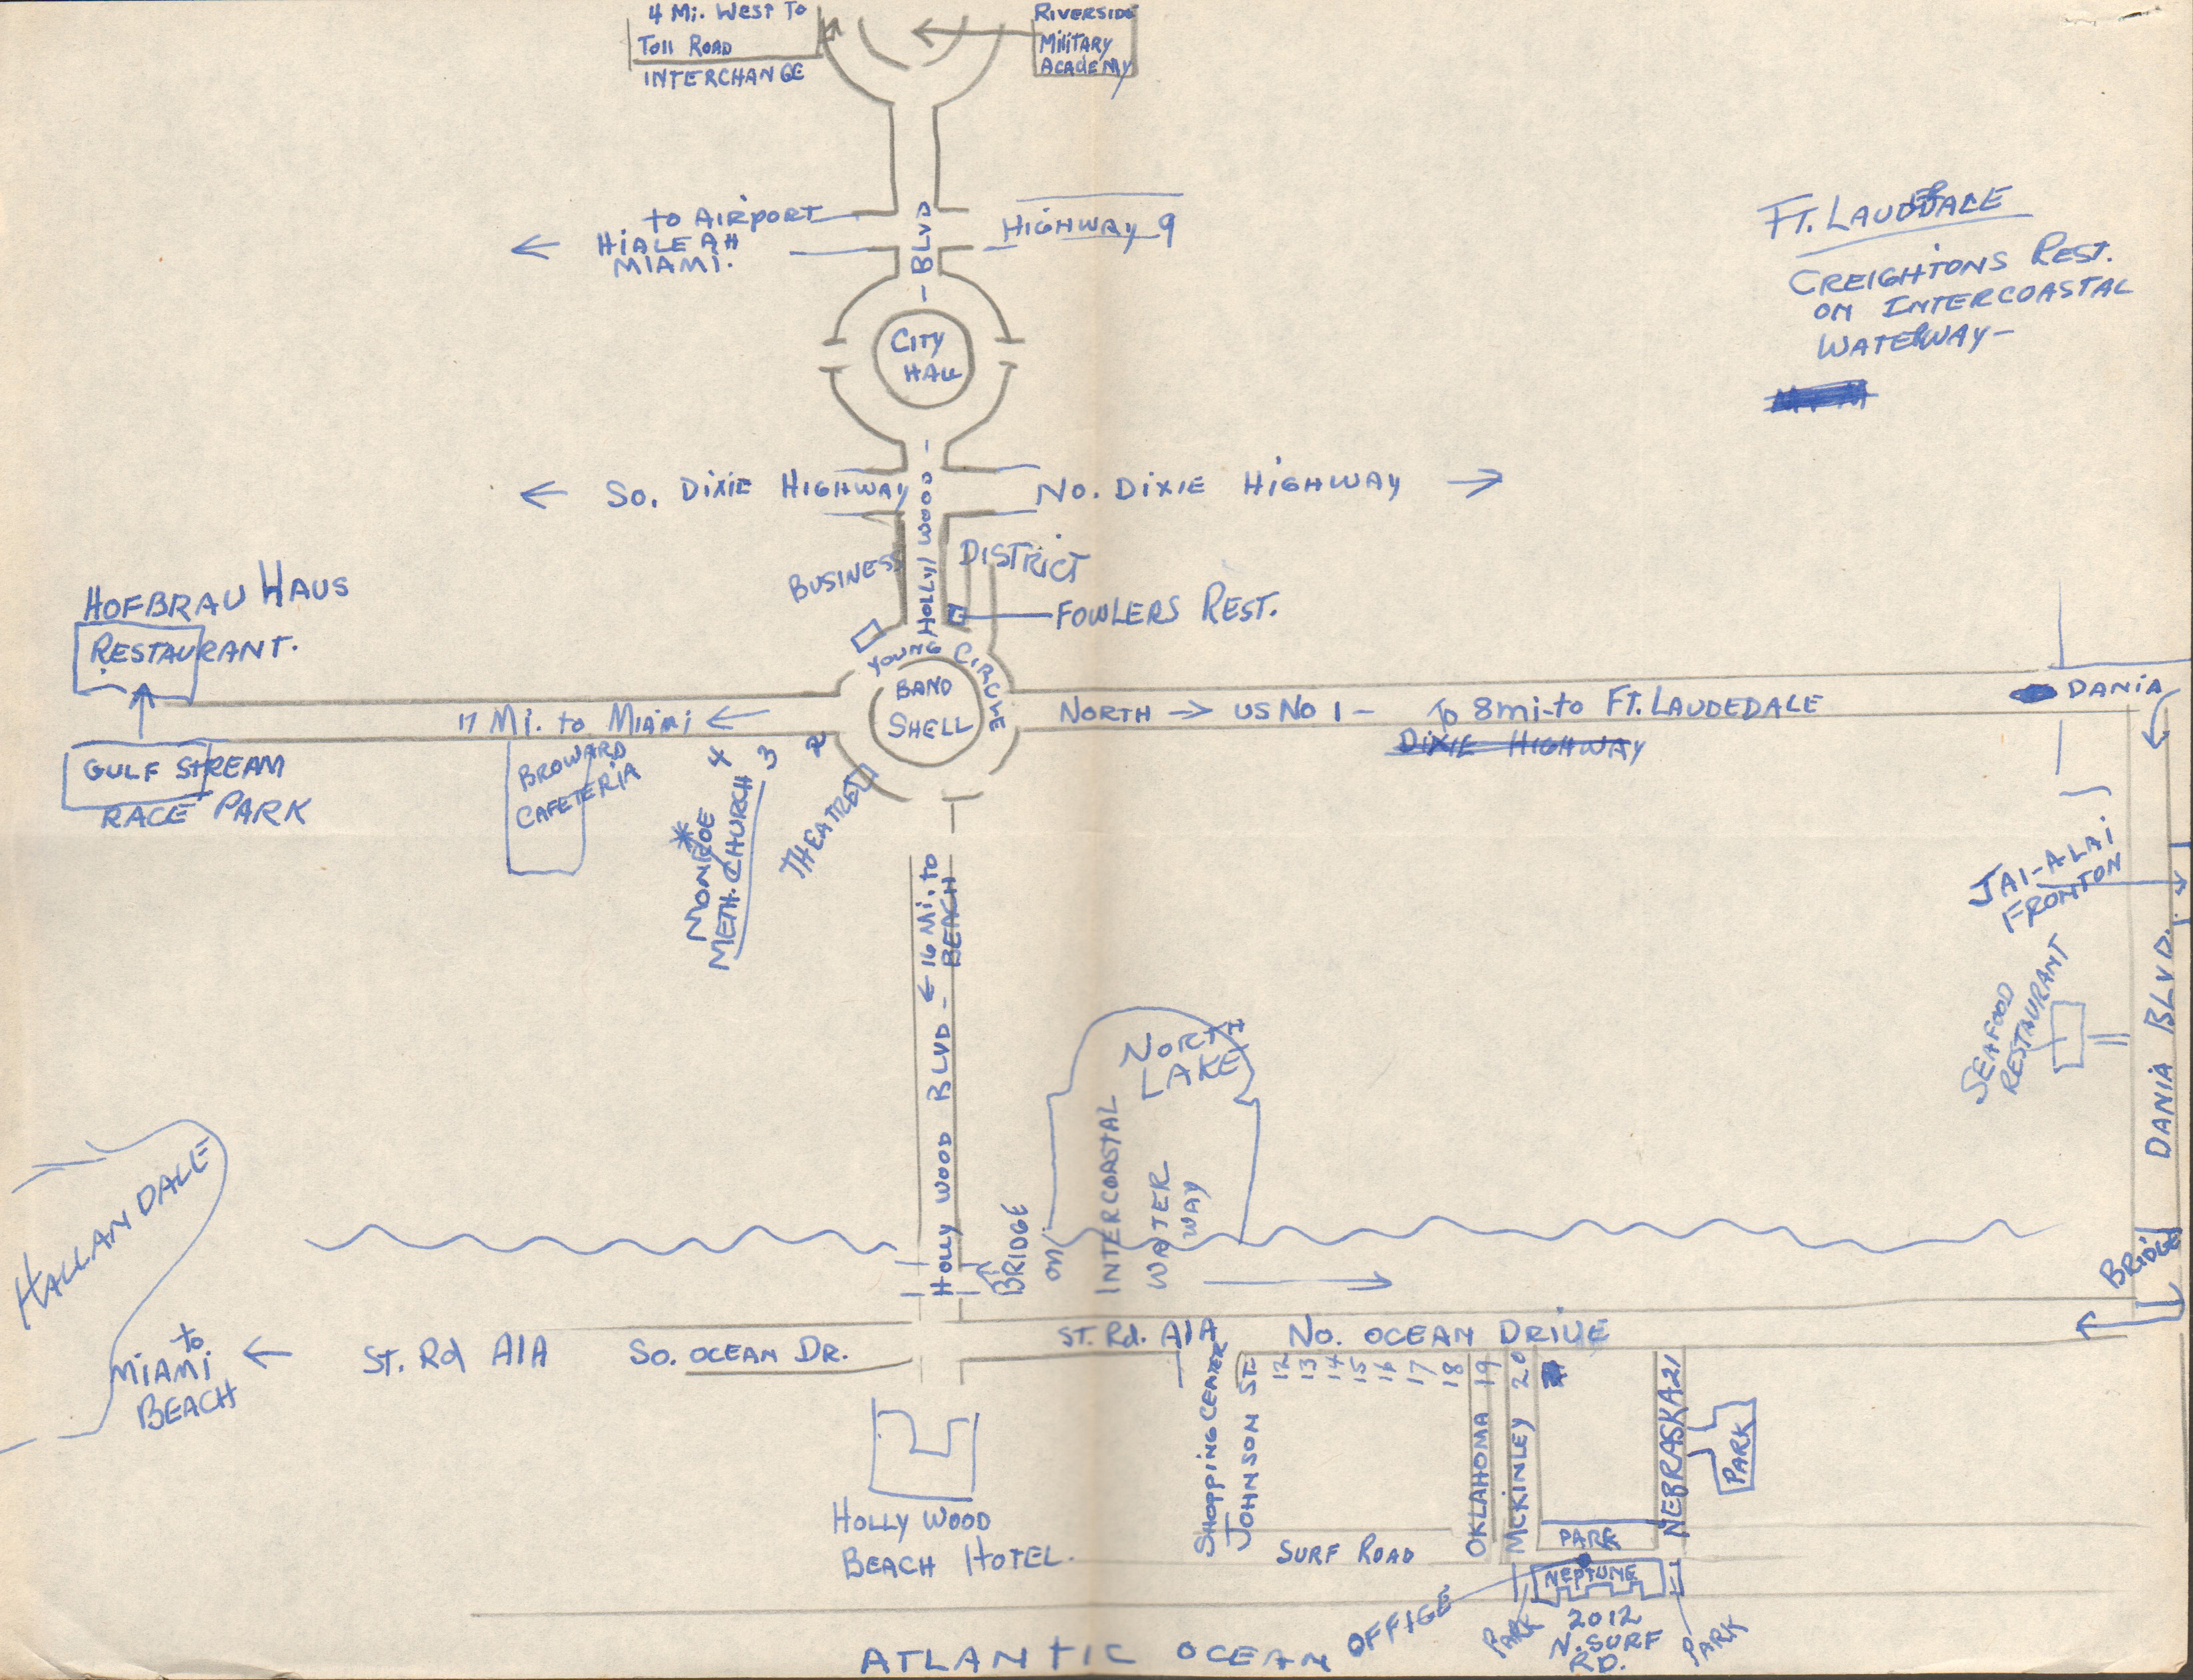 4 Mi. West To
Toll Road
INTERCHANGE
RIVERSIDE
MilitARY
ACADEMY
to AIRPORT
HIALEAH
MIAMI.
HIGHWAY 9
BLVD
FT. LAUDDALE
CREIGHTONS REST.
ON INTERCOASTAL
WATERWAY-
CITY
HALL
So. DIXIE HIGHWAY
HOLLYWOOD
No. DIXIE HIGHWAY
BUSINESS
DISTRICT
FOWLERS REST.
HOFBRAU HAUS
RESTAURANT.
YOUNG CIRCLE
BAND
SHELL
17 Mi. to MIAMI
NORTH → US No 1 - To 8mi-to FT. LAUDEDALE
DIXIE HIGHWAY
DANIA
GULF STREAM
RACE PARK
BROWARD
CAFETERIA
4
3
2
MONROE
METH. CHURCH
THEATRE
HOLLY WOOD BLVD - ← 16 Mi. to
BEACH
JAI-ALAI
FRONTON
SEAFOOD
RESTAURANT
DANIA BLVD.
NORTH
LAKE
BRIDGE
ON
INTERCOASTAL
WATER
WAY
BRIDGE
HALLANDALE
to
MIAMI
BEACH
ST. Rd A1A
So. OCEAN DR.
ST. Rd. A1A
No. OCEAN DRIVE
SHOPPING CENTER
JOHNSON ST.
12
13
14
15
16
17
18
OKLAHOMA 19
McKINLEY 20
NEBRASKA 21
PARK
HOLLY WOOD
BEACH HOTEL.
SURF ROAD
PARK
NEPTUNE
OFFICE
PARK
2012
N. SURF
RD.
PARK
ATLANTIC OCEAN